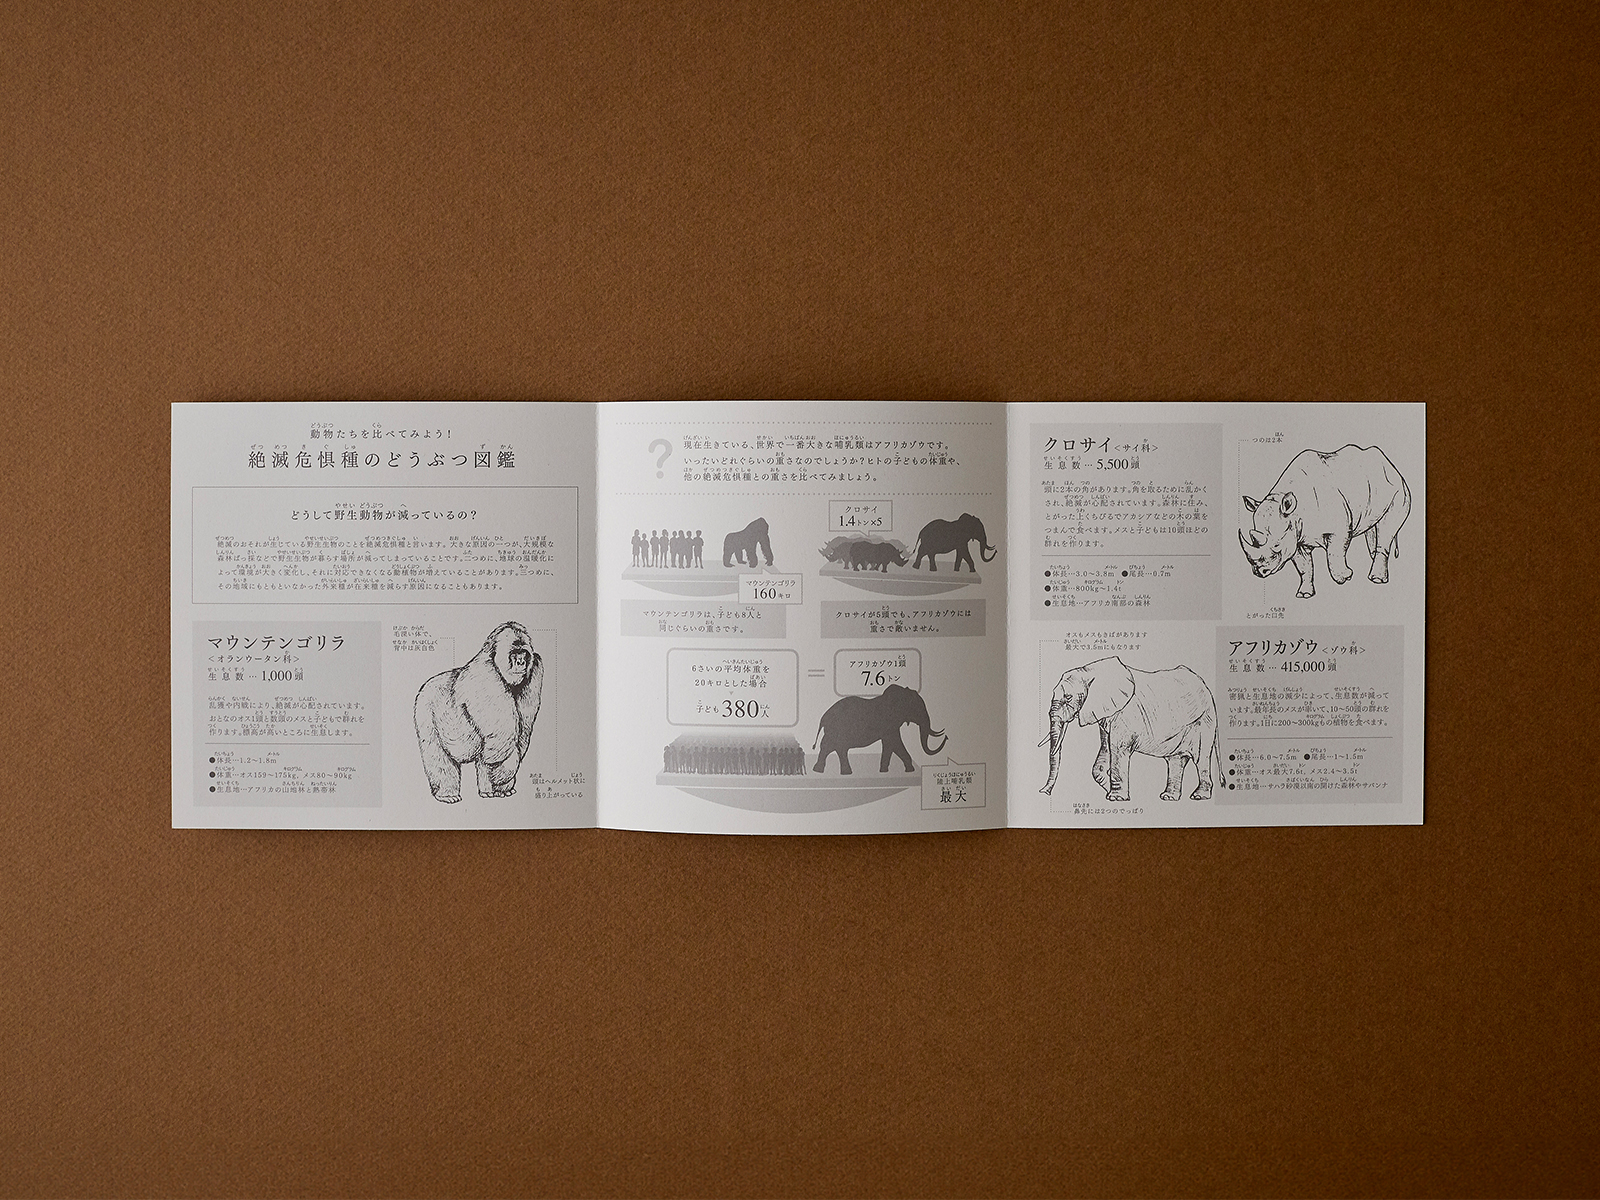 動物たちを比べてみよう!
絶滅危惧種のどうぶつ図鑑
どうして野生動物が減っているの?
絶滅のおそれが生じている野生生物のことを絶滅危惧種と言います。大きな原因の一つが、大規模な
森林ばっ採などで野生生物が暮らす場所が減ってしまっていることです。二つめに、地球の温暖化に
よって環境が大きく変化し、それに対応できなくなる動植物が増えていることがあります。三つめに、
その地域にもともといなかった外来種が在来種を減らす原因になることもあります。
マウンテンゴリラ
<オランウータン科>
生息数…1,000頭
乱獲や内戦により、絶滅が心配されています。
おとなのオス1頭と数頭のメスと子どもで群れを
作ります。標高が高いところに生息します。
●体長…1.2〜1.8m
●体重…オス159〜175kg, メス80〜90kg
●生息地…アフリカの山地林と熱帯林
毛深い体で、
背中は灰白色
頭はヘルメット状に
盛り上がっている
?
現在生きている、世界で一番大きな哺乳類はアフリカゾウです。
いったいどれぐらいの重さなのでしょうか?ヒトの子どもの体重や、
他の絶滅危惧種との重さを比べてみましょう。
マウンテンゴリラ
160キロ
マウンテンゴリラは、子ども8人と
同じぐらいの重さです。
クロサイ
1.4トン×5
クロサイが5頭でも、アフリカゾウには
重さで敵いません。
6さいの平均体重を
20キロとした場合
子ども380人
=
アフリカゾウ1頭
7.6トン
陸上哺乳類
最大
クロサイ<サイ科>
生息数…5,500頭
頭に2本の角があります。角を取るために乱かく
され、絶滅が心配されています。森林に住み、
とがった上くちびるでアカシアなどの木の葉を
つまんで食べます。メスと子どもは10頭ほどの
群れを作ります。
●体長…3.0〜3.8m ●尾長…0.7m
●体重…800kg〜1.4t
●生息地…アフリカ南部の森林
つのは2本
とがった口先
オスもメスもきばがあります
最大で3.5mにもなります
鼻先には2つのでっぱり
アフリカゾウ<ゾウ科>
生息数…415,000頭
密猟と生息地の減少によって、生息数が減って
います。最年長のメスが率いて、10〜50頭の群れを
作ります。1日に200〜300kgもの植物を食べます。
●体長…6.0〜7.5m ●尾長…1〜1.5m
●体重…オス最大7.6t, メス2.4〜3.5t
●生息地…サハラ砂漠以南の開けた森林やサバンナ